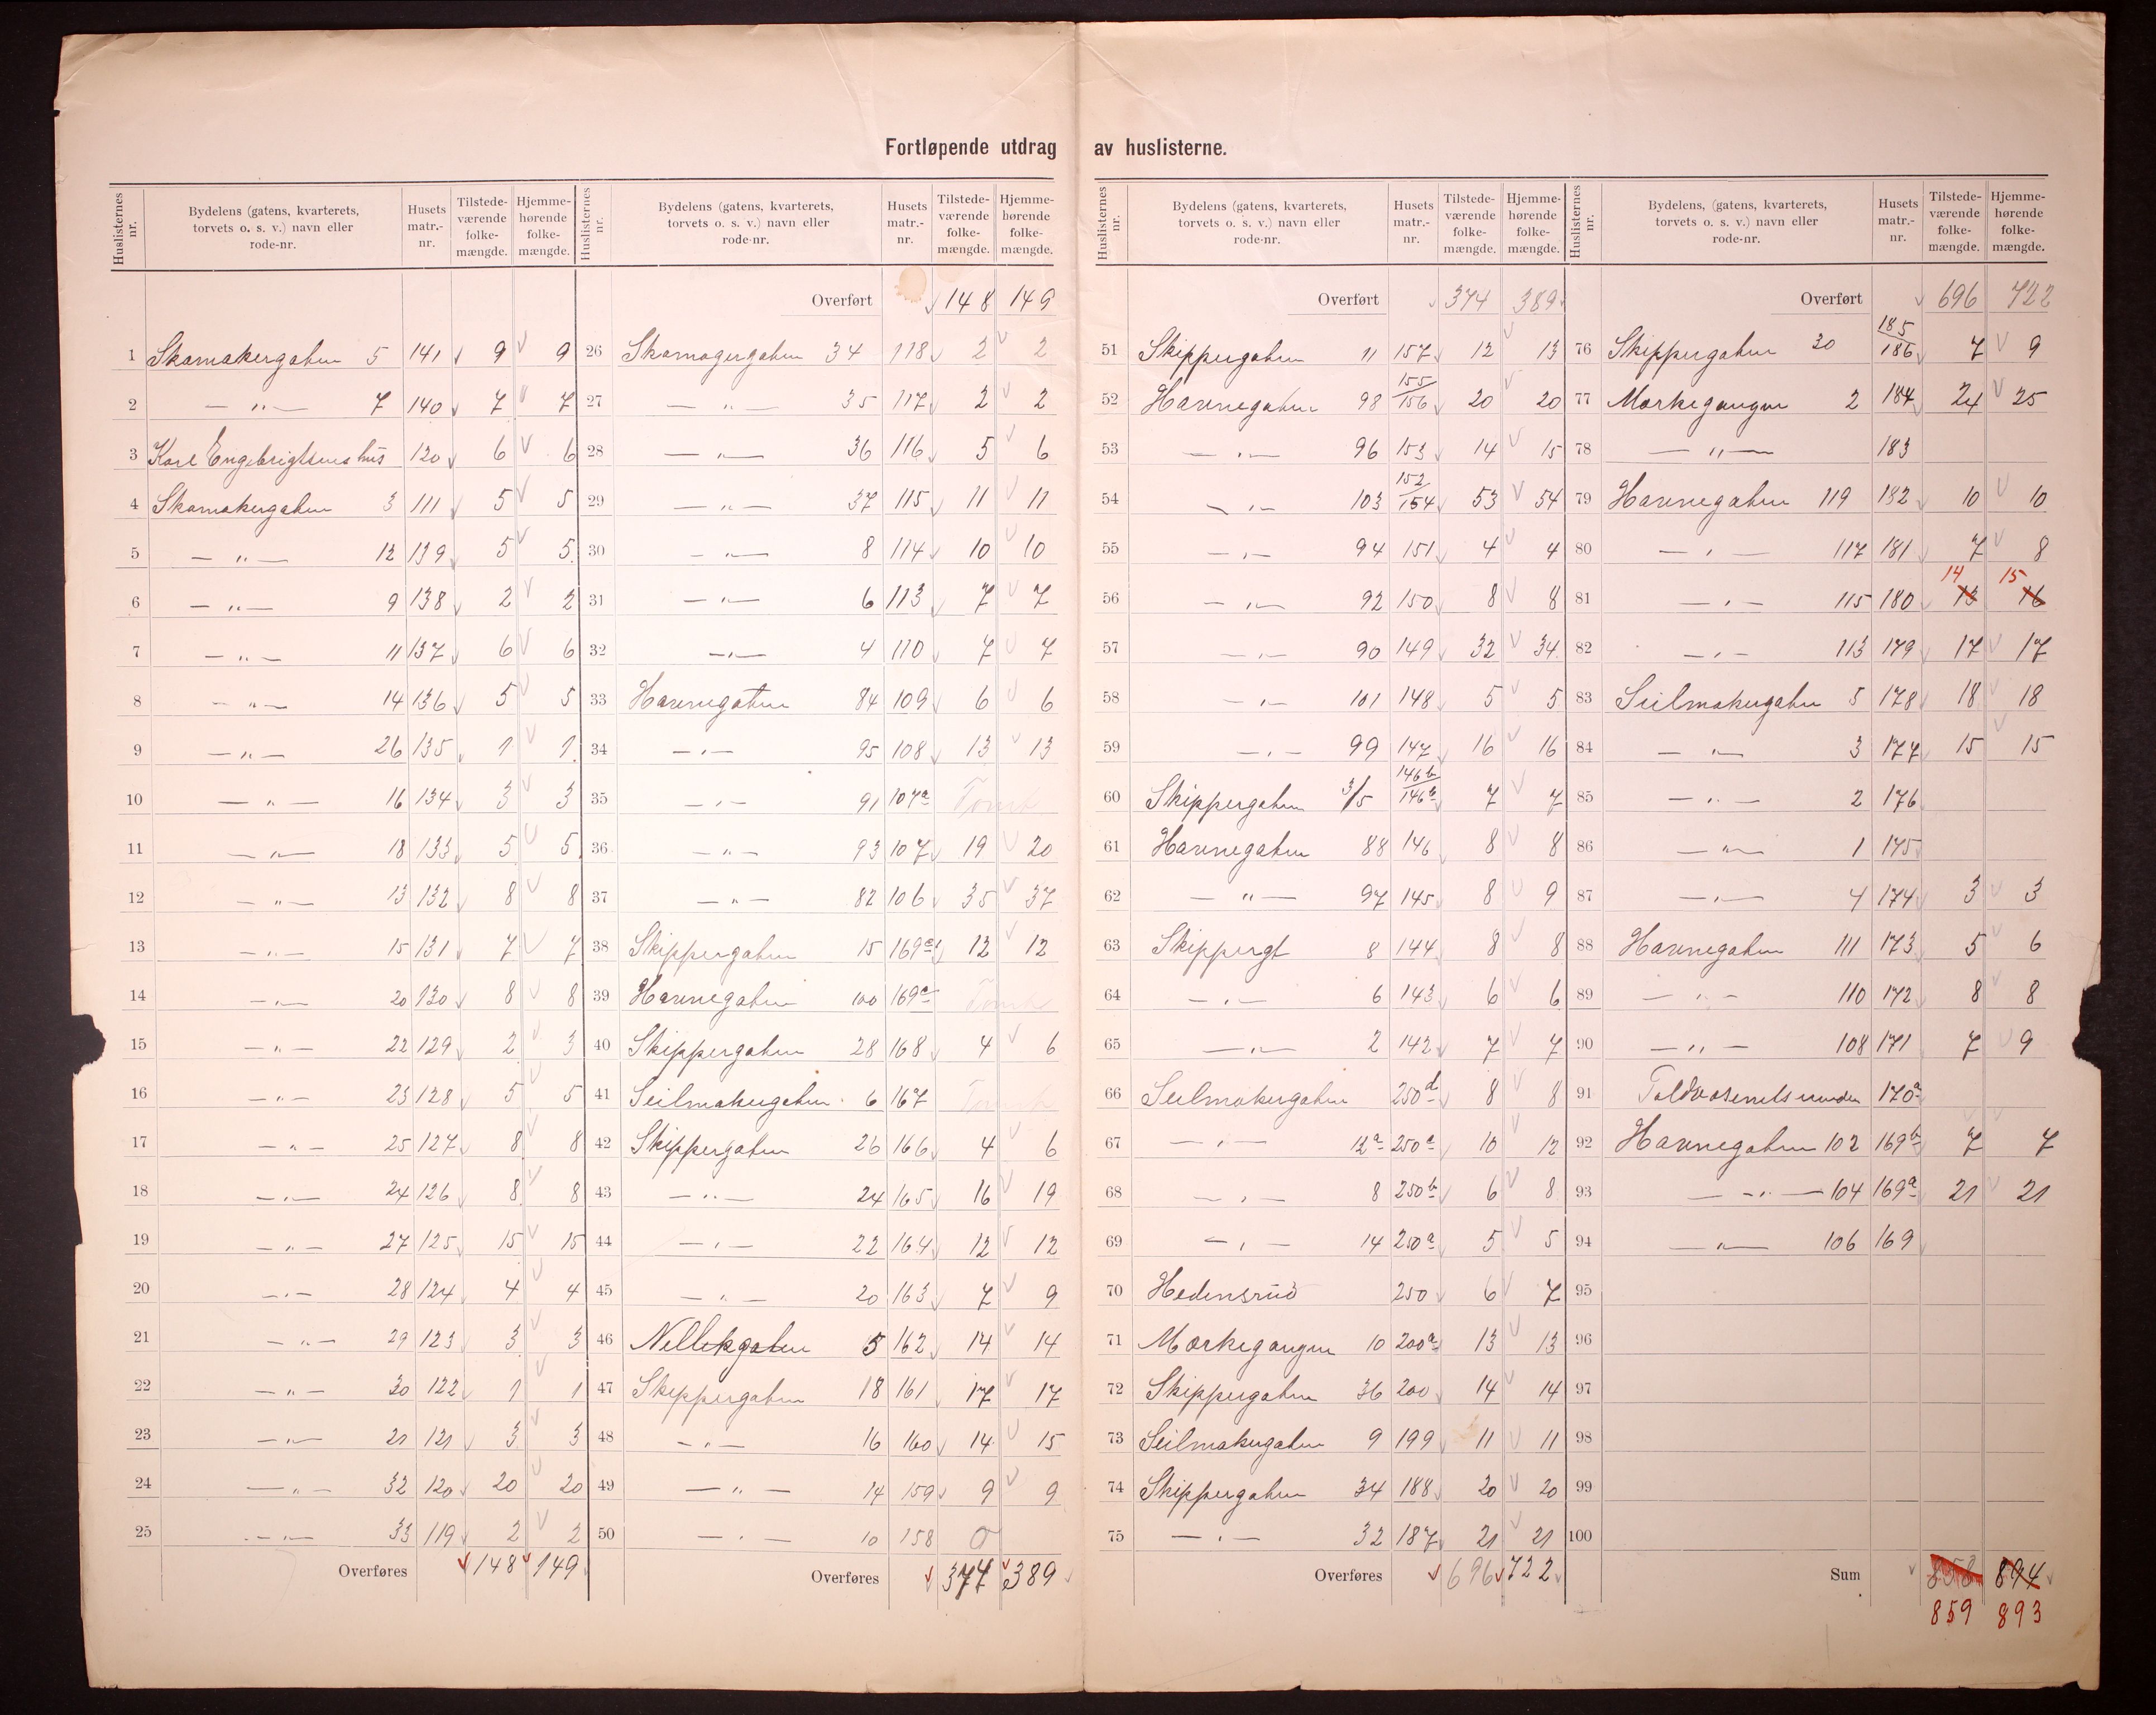 Fortløpende utdrag av huslisterne.
Huslisternes nr. | Bydelens (gatens, kvarterets, torvets o. s. v.) navn eller rode-nr. | Husets matr.-nr. | Tilstede-værende folke-mængde. | Hjemme-hørende folke-mængde.
1 Skomakergaten 5 141 9 9
2 — „ — 7 140 7 7
3 Karl Engebrigtsens hus 120 6 6
4 Skomakergaten 3 111 5 5
5 — „ — 12 139 5 5
6 — „ — 9 138 2 2
7 — „ — 11 137 6 6
8 — „ — 14 136 5 5
9 — „ — 26 135 1 1
10 — „ — 16 134 3 3
11 — „ — 18 133 5 5
12 — „ — 13 132 8 8
13 — „ — 15 131 7 7
14 — „ — 20 130 8 8
15 — „ — 22 129 2 3
16 — „ — 23 128 5 5
17 — „ — 25 127 8 8
18 — „ — 24 126 8 8
19 — „ — 27 125 15 15
20 — „ — 28 124 4 4
21 — „ — 29 123 3 3
22 — „ — 30 122 1 1
23 — „ — 21 121 3 3
24 — „ — 32 120 20 20
25 — „ — 33 119 2 2
Overføres 148 149
Huslisternes nr. | Bydelens (gatens, kvarterets, torvets o. s. v.) navn eller rode-nr. | Husets matr.-nr. | Tilstede-værende folke-mængde. | Hjemme-hørende folke-mængde.
Overført 148 149
26 Skomagergaten 34 118 2 2
27 — „ — 35 117 2 2
28 — „ — 36 116 5 6
29 — „ — 37 115 11 11
30 — „ — 8 114 10 10
31 — „ — 6 113 7 7
32 — „ — 4 110 7 7
33 Havnegaten 84 109 6 6
34 — „ — 95 108 13 13
35 — „ — 91 107a Tomt
36 — „ — 93 107 19 20
37 — „ — 82 106 35 37
38 Skippergaten 15 169 12 12
39 Havnegaten 100 169 Tomt
40 Skippergaten 28 168 4 6
41 Seilmakergaten 6 167 Tomt
42 Skippergaten 26 166 4 6
43 — „ — 24 165 16 19
44 — „ — 22 164 12 12
45 — „ — 20 163 7 9
46 Nellekgaten 5 162 14 14
47 Skippergaten 18 161 17 17
48 — „ — 16 160 14 15
49 — „ — 14 159 9 9
50 — „ — 10 158 0
Overføres 374 389
Huslisternes nr. | Bydelens (gatens, kvarterets, torvets o. s. v.) navn eller rode-nr. | Husets matr.-nr. | Tilstede-værende folke-mængde. | Hjemme-hørende folke-mængde.
Overført 374 389
51 Skippergaten 11 157 12 13
52 Havnegaten 98 155/156 20 20
53 — „ — 96 153 14 15
54 — „ — 103 152/154 53 54
55 — „ — 94 151 4 4
56 — „ — 92 150 8 8
57 — „ — 90 149 32 34
58 — „ — 101 148 5 5
59 — „ — 99 147 16 16
60 Skippergaten 3/5 146b/146b 7 7
61 Havnegaten 88 146 8 8
62 — „ — 97 145 8 9
63 Skippergt 8 144 8 8
64 — „ — 6 143 6 6
65 — „ — 2 142 7 7
66 Seilmakergaten 250d 8 8
67 — „ — 12a 250a 10 12
68 — „ — 8 250b 6 8
69 — „ — 14 250a 5 5
70 Hedensrud 250 6 7
71 Morkegangen 10 200a 13 13
72 Skippergaten 36 200 14 14
73 Seilmakergaten 9 199 11 11
74 Skippergaten 34 188 20 20
75 — „ — 32 187 21 21
Overføres 696 722
Huslisternes nr. | Bydelens, (gatens, kvarterets, torvets o. s. v.) navn eller rode-nr. | Husets matr.-nr. | Tilstede-værende folke-mængde. | Hjemme-hørende folke-mængde.
Overført 696 722
76 Skippergaten 30 185/186 7 9
77 Morkegangen 2 184 24 25
78 — „ — 183
79 Havnegaten 119 182 10 10
80 — „ — 117 181 7 8
14 15
81 — „ — 115 180 13 16
82 — „ — 113 179 17 17
83 Seilmakergaten 5 178 18 18
84 — „ — 3 177 15 15
85 — „ — 2 176
86 — „ — 1 175
87 — „ — 4 174 3 3
88 Havnegaten 111 173 5 6
89 — „ — 110 172 8 8
90 — „ — 108 171 7 9
91 170a
92 Havnegaten 102 169b 7 7
93 — „ — 104 169a 21 21
94 — „ — 106 169
95
96
97
98
99
100
Sum 858 894
859 893